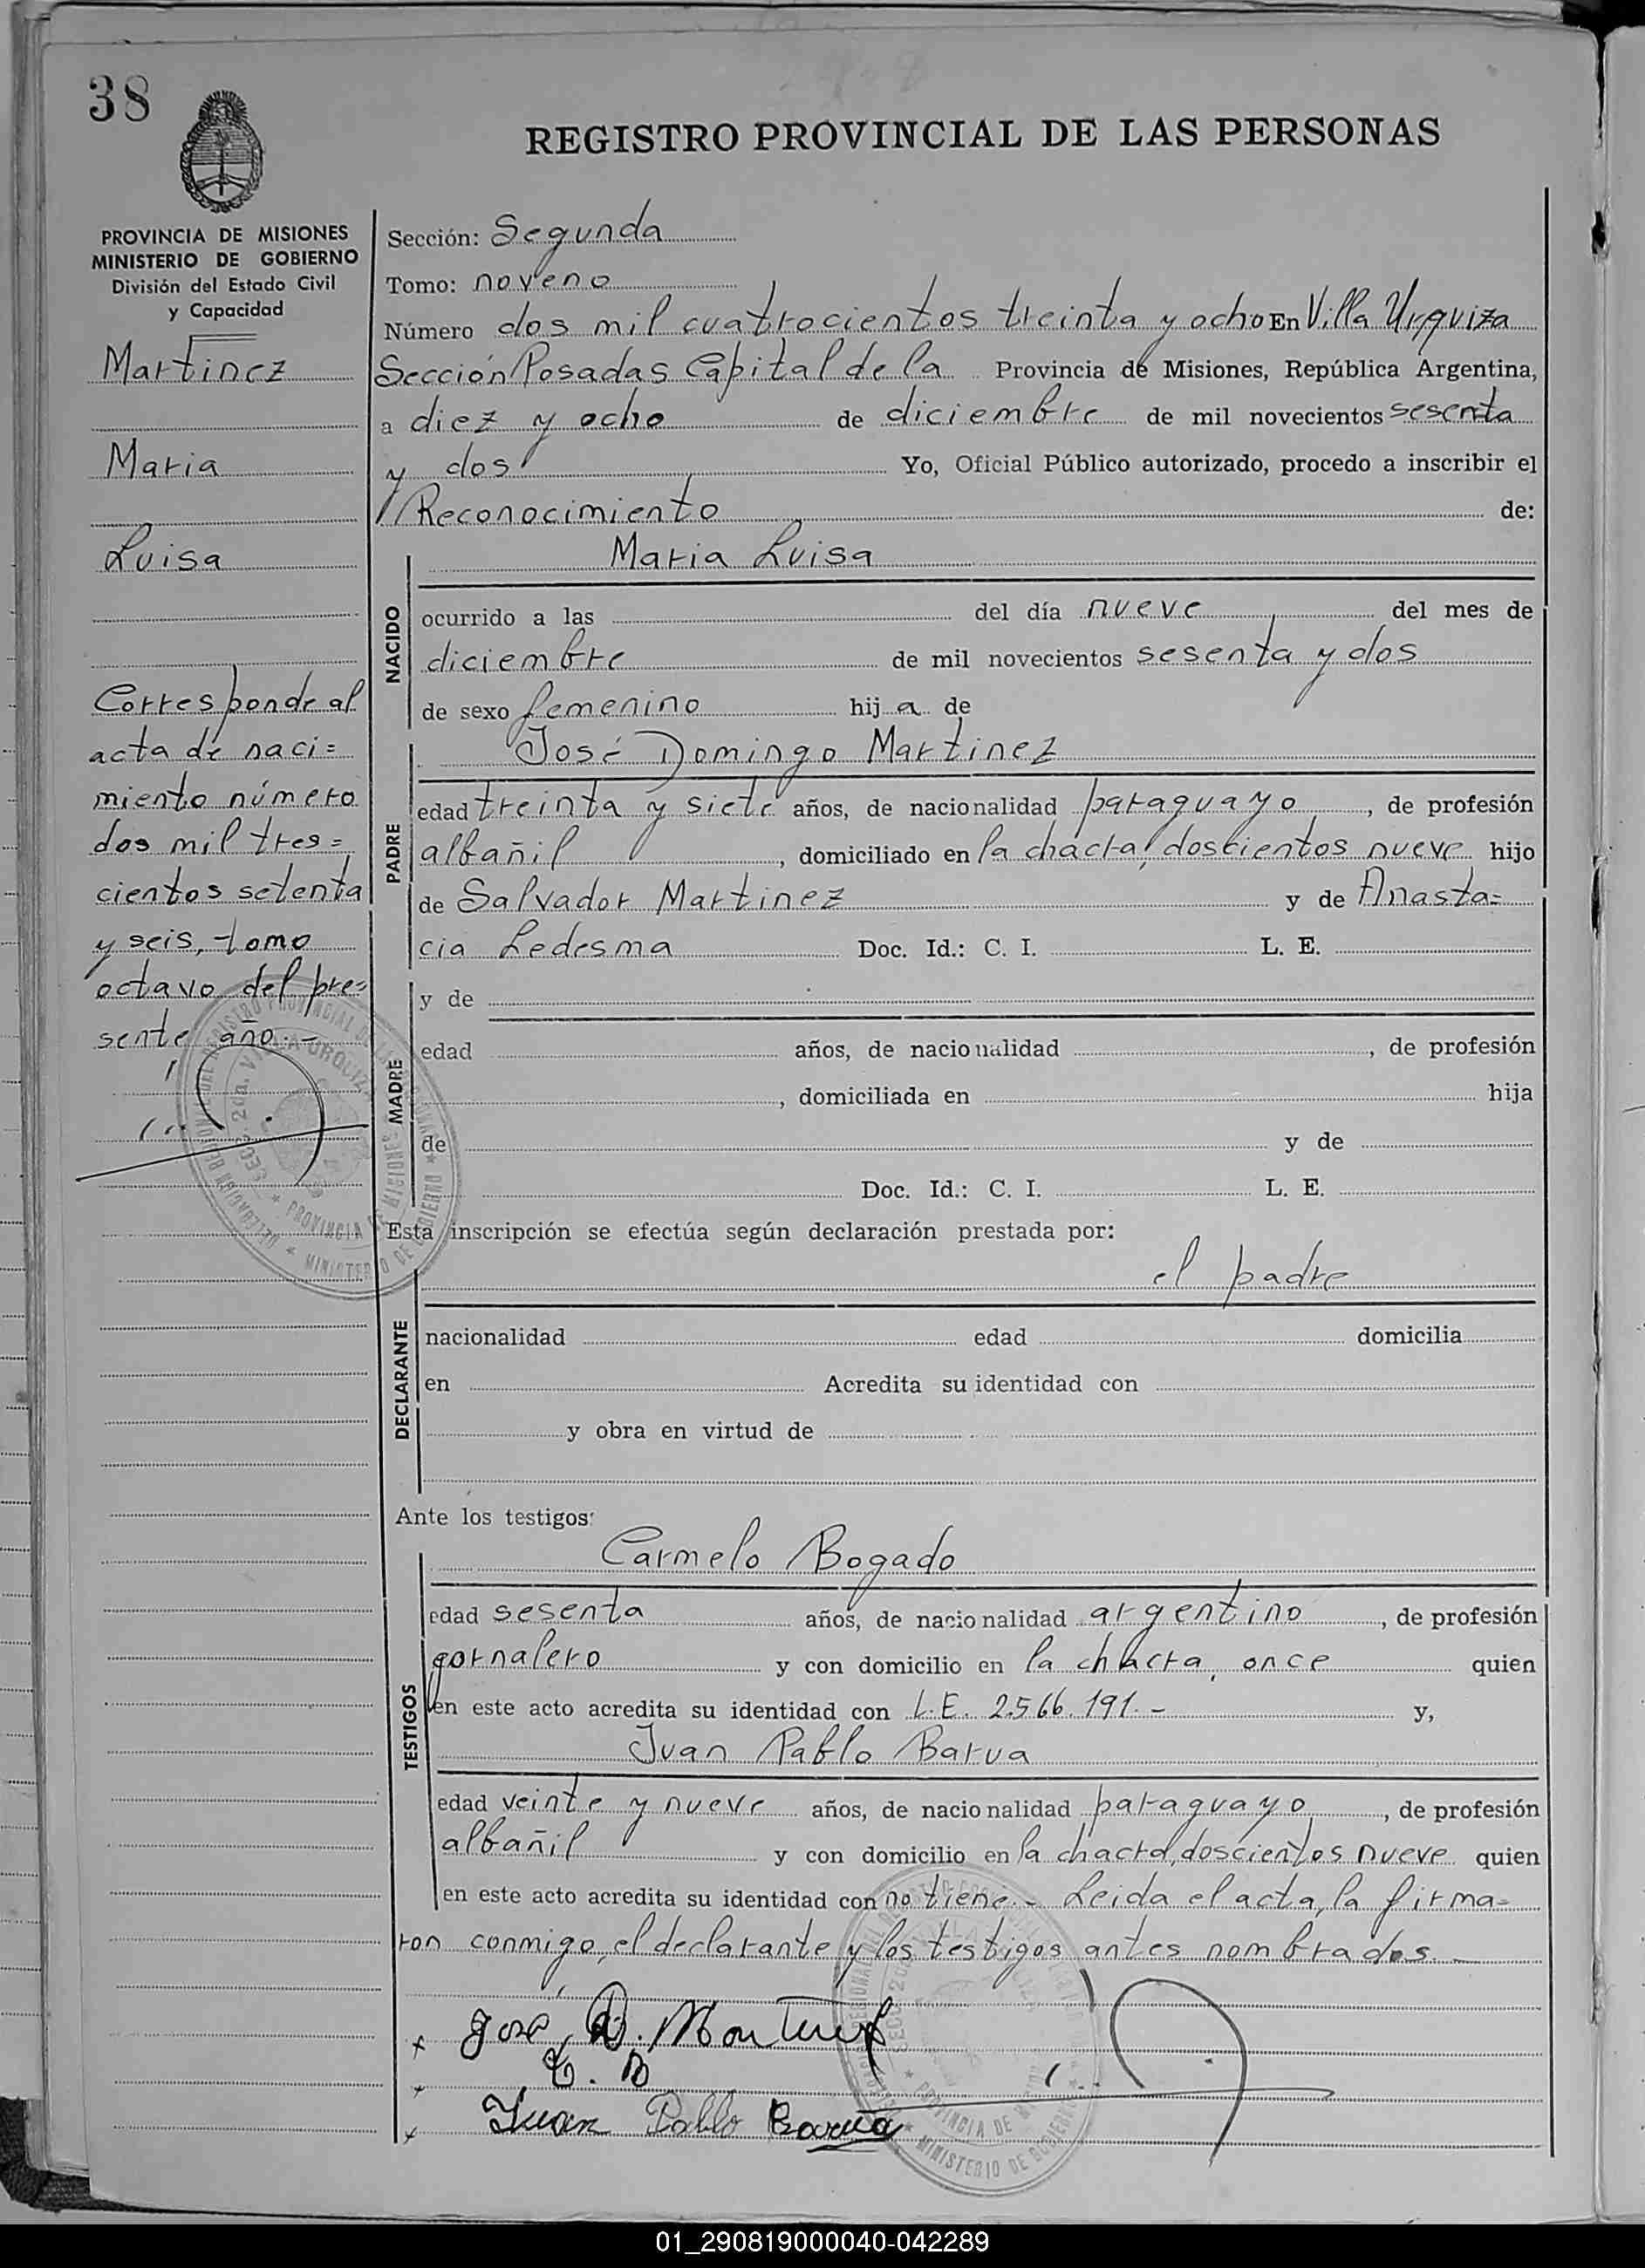 38
REGISTRO PROVINCIAL DE LAS PERSONAS
PROVINCIA DE MISIONES
MINISTERIO DE GOBIERNO
División del Estado Civil
y Capacidad
Martinez
Maria
Luisa
Corresponde al
acta de naci=
miento número
dos mil tres=
cientos setenta
y seis, tomo
octavo del pre=
sente año.-
Sección: Segunda
Tomo: noveno
Número dos mil cuatrocientos treinta y ocho En Villa Urquiza
Sección Posadas Capital de la Provincia de Misiones, República Argentina,
a diez y ocho de diciembre de mil novecientos sesenta
y dos Yo, Oficial Público autorizado, procedo a inscribir el
Reconocimiento de:
Maria Luisa
NACIDO
ocurrido a las del día nueve del mes de
diciembre de mil novecientos sesenta y dos
de sexo femenino hij a de
José Domingo Martinez
PADRE
edad treinta y siete años, de nacionalidad paraguayo, de profesión
albañil, domiciliado en la chacra, doscientos nueve hijo
de Salvador Martinez y de Anasta=
cia Ledesma Doc. Id.: C. I. L. E.
y de
MADRE
edad años, de nacionalidad , de profesión
, domiciliada en hija
de y de
Doc. Id.: C. I. L. E.
Esta inscripción se efectúa según declaración prestada por:
el padre
DECLARANTE
nacionalidad edad domicilia
en Acredita su identidad con
y obra en virtud de
Ante los testigos:
Carmelo Bogado
TESTIGOS
edad sesenta años, de nacionalidad argentino, de profesión
gornalero y con domicilio en la chacra, once quien
en este acto acredita su identidad con L.E. 2.566.191.- y,
Juan Pablo Barua
edad veinte y nueve años, de nacionalidad paraguayo, de profesión
albañil y con domicilio en la chacra, doscientos nueve quien
en este acto acredita su identidad con no tiene.- Leida el acta, la firma=
ron conmigo, el declarante y los testigos antes nombrados.-
José D. Martinez
C. B
Juan Pablo Barua
01_290819000040-042289